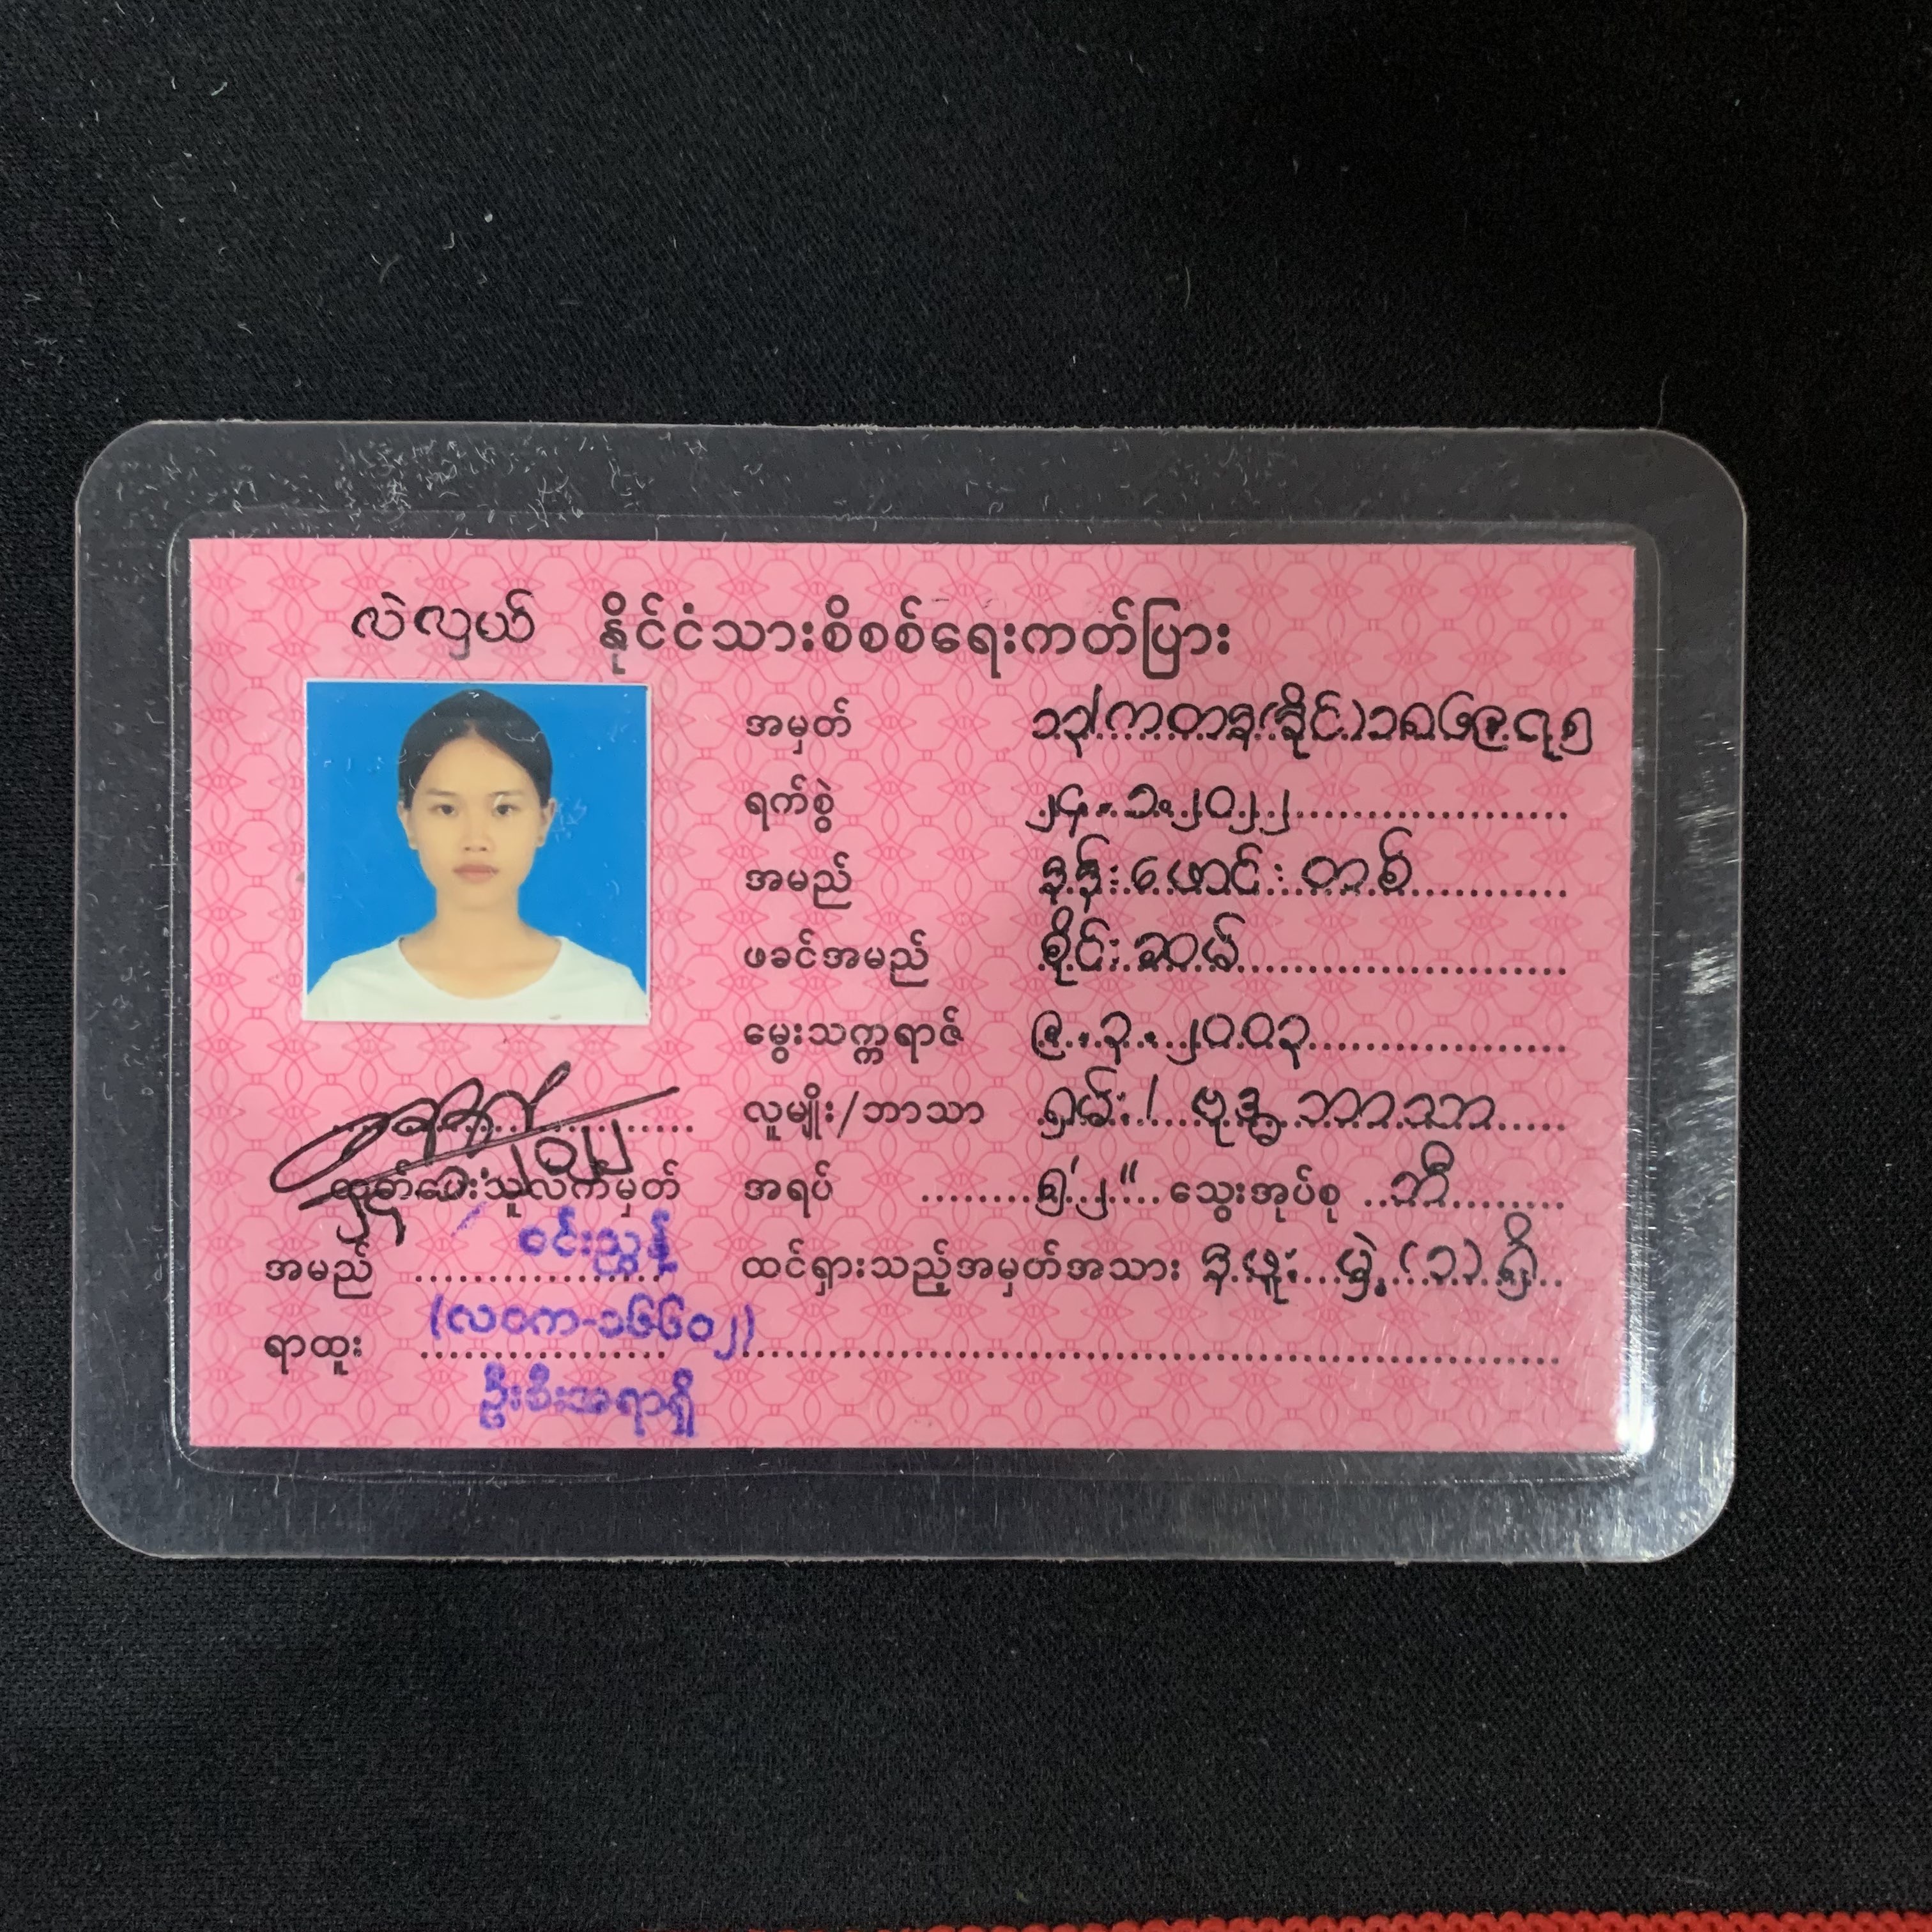 လဲလှယ် နိုင်ငံသားစိစစ်ရေးကတ်ပြား
အမှတ် ၁၃/ကတန(နိုင်)၁၈၆၉၇၅
ရက်စွဲ ၂၄.၁.၂၀၂၂
အမည် နန်းဖောင်းတစ်
ဖခင်အမည် စိုင်းဆမ်
မွေးသက္ကရာဇ် ၉.၃.၂၀၀၃
လူမျိုး/ဘာသာ ရှမ်း/ ဗုဒ္ဓဘာသာ
အရပ် ၅'၂" သွေးအုပ်စု ဘီ
ထင်ရှားသည့်အမှတ်အသား နဖူး မှဲ့(၁)ရှိ
ထုတ်ပေးသူလက်မှတ်
အမည် ဝင်းညွန့်
ရာထူး (လဝက-၁၆၆၀၂)
ဦးစီးအရာရှိ